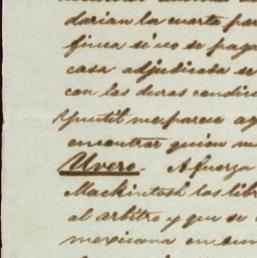 darian la cuarta par
finca si no se paga
casa adjudicada se
con las duras condic
Ynutil me parece ag
encontrar quien
Uvero. A fuerza
Mackintosh los lib
al arbitro y que se
mexicana en